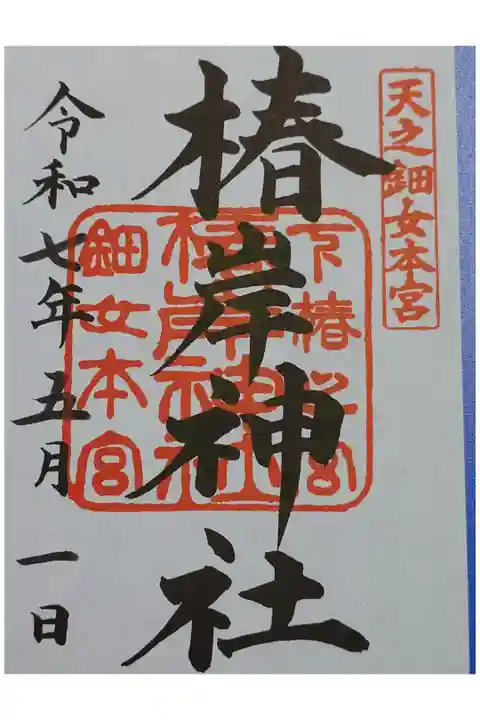 天之鈿女本宮
椿岸神社
下椿之宮
椿岸神社
鈿女本宮
令和七年五月一日